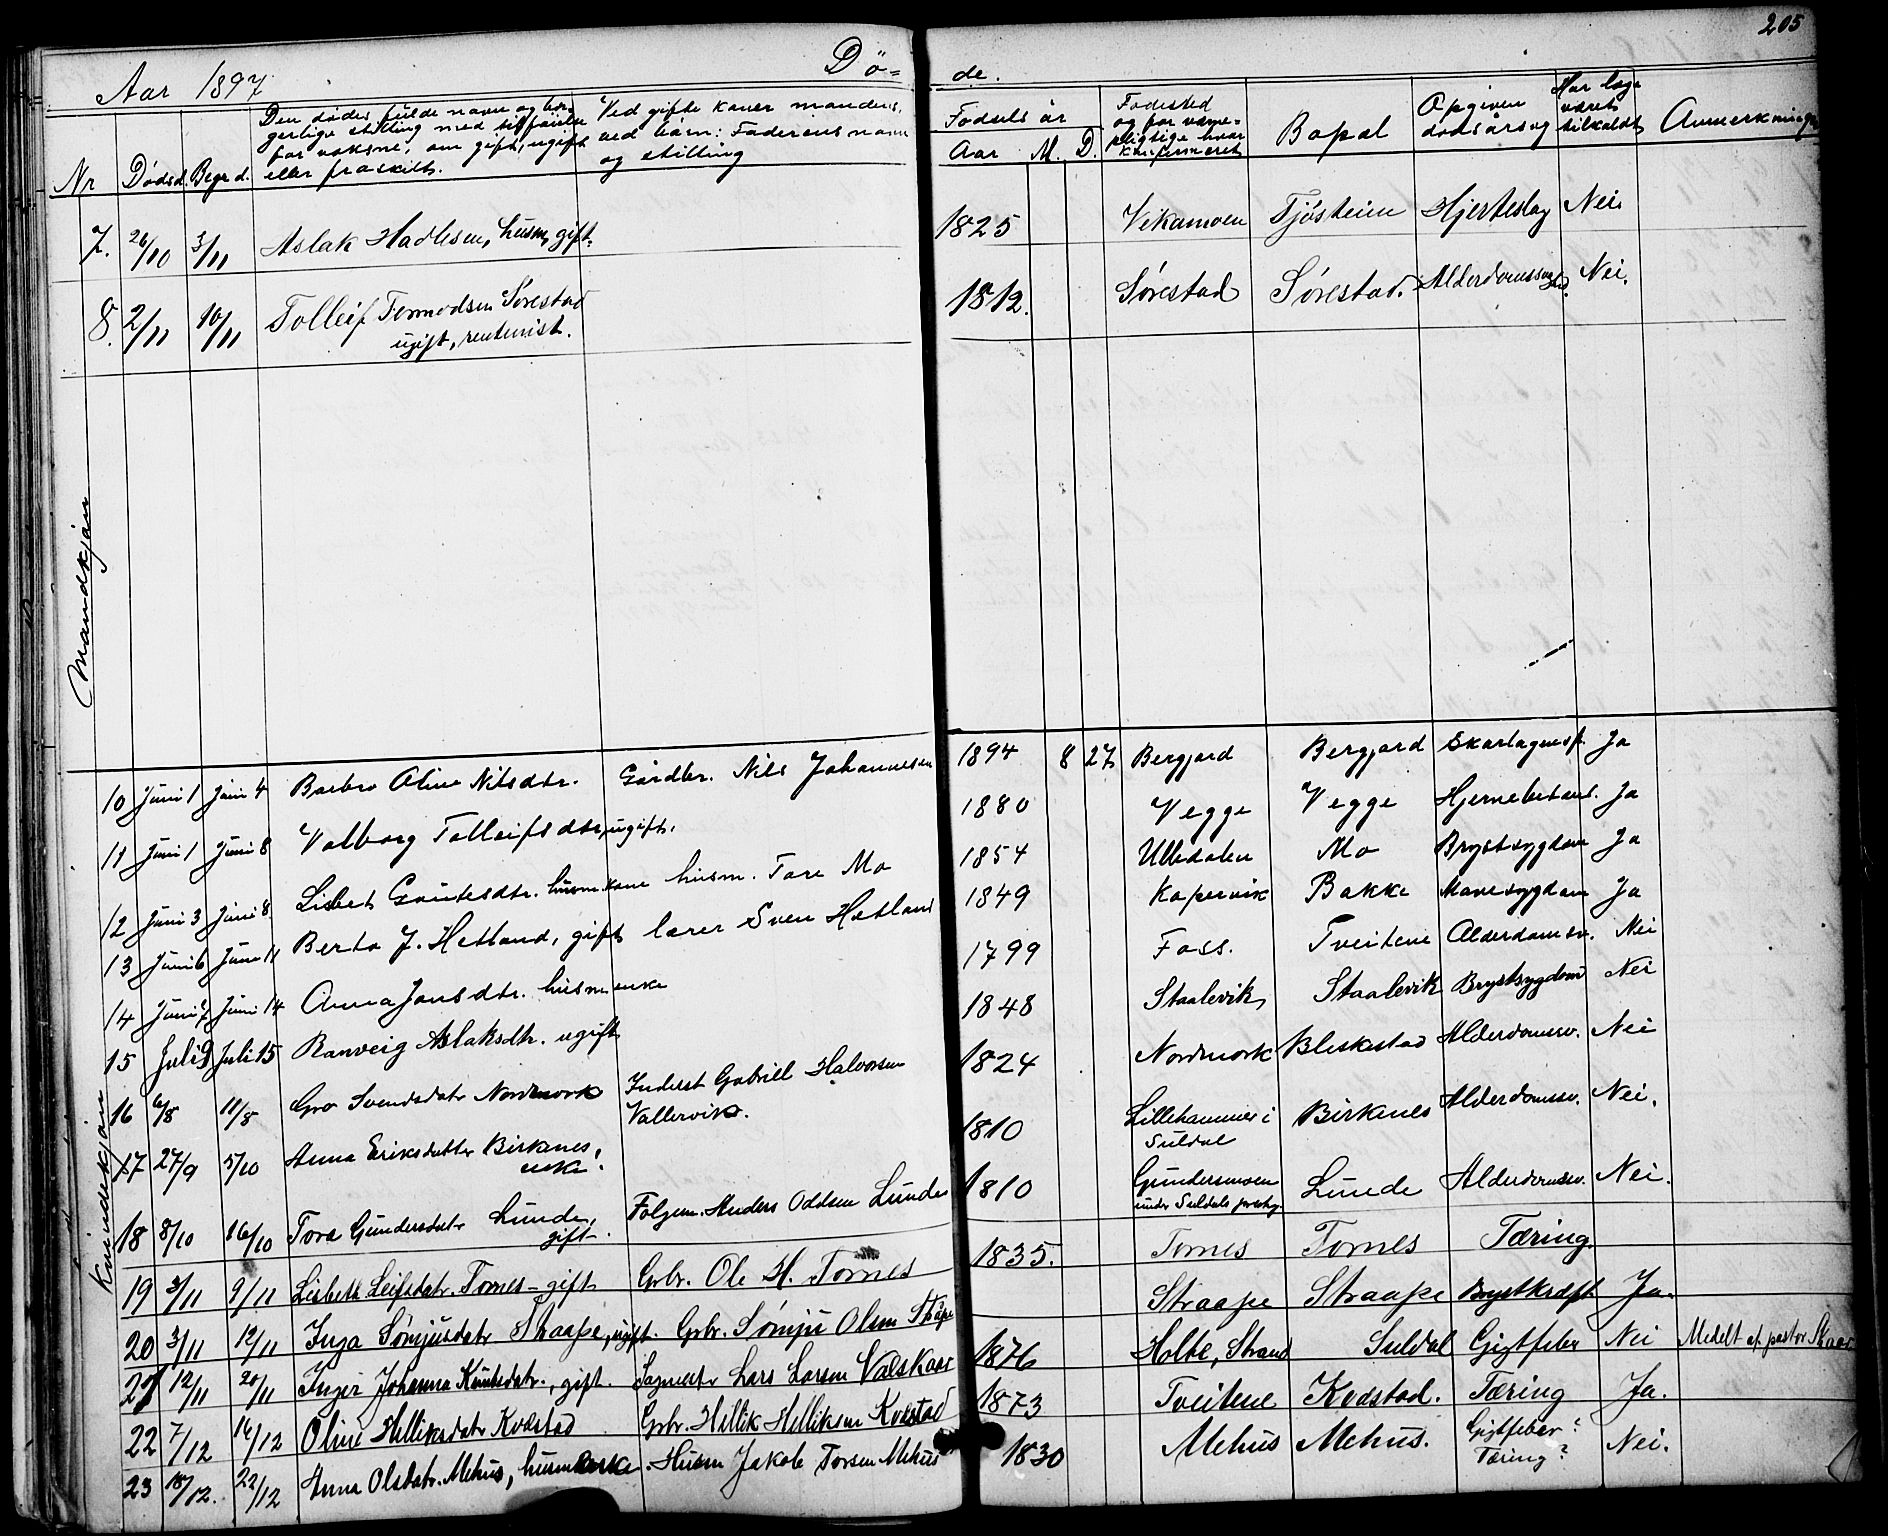 205
Aar 1897
Dø=
de.
Nr
Dødsd.
Begr d.
Den dødes fulde navn og bor-
gerlige stilling med tilføielse
for voksne, om gift, ugift
eller fraskilt.
Ved gifte koner mandens,
ved børn: Faderens navn
og stilling
Fødsels år
Aar M. D.
Fødested
og for værne-
pligtige hvor
konfirmeret
Bopæl
Opgiven
dødsårsag
Har læge
været
tilkaldt
Anmerkninger
Mandkjøn
7. 26/10 3/11 Aslak Hadlesen, husm, gift. 1825 Vikamoen Tjøstein Hjerteslag Nei.
8. 2/11 10/11 Tolleif Tormodsen Sørestad
ugift, rentenist. 1812. Sørestad Sørestad. Alderdomssvaghed. Nei.
Kvindekjøn
10 Juni 1 Juni 4 Barbro Oline Nilsdtr. Gårdbr. Nils Johannesen 1894 8 27 Bergjord Bergjord Skarlagensf. Ja
11 Juni 1 Juni 8 Valborg Tolleifsdtr, ugift. 1880 Vegge Vegge Hjernebetænd. Ja
12 Juni 3 Juni 8. Lisbet Gautesdtr. husm.kone husm. Tore Mo 1854 Ulledalen Mo Brystsygdom Ja
13 Juni 6 Juni 11 Berta J. Hetland, gift lærer Sven Hetland 1849 Kopervik Bakke Mavesygdom Ja
14 Juni 7 Juni 14 Anna Jonsdtr. husm enke 1799 Foss. Tveitene Alderdomsv. Nei
15 Juli 9 Juli 15 Ranveig Aslaksdtr. ugift 1848 Staalevik Staalevik Brystsygdom Nei
16 6/8 11/8 Gro Svendsdatr Nordmork Inderst Gabriel Halvorsen
Vallervik. 1824 Nordmork Bleskestad Alderdomssv. Nei
17 27/9 5/10 Anna Eriksdatter Birkenes,
enke. 1810 Lillehammer i
Suldal Birkenes Alderdomssv. Nei.
18 8/10 16/10 Tora Gundersdatr Lunde,
gift. Folgem. Anders Oddsen Lunde 1810 Gundersmoen
under Suldals prestg. Lunde Alderdomssv. Nei.
19 3/11 9/11 Lisbeth Leifsdatr. Tornes - gift Grbr. Ole H. Tornes 1835. Tornes Tornes Tæring
20 3/11 12/11 Inga Sømjusdatr Straape, ugift. Grbr. Sømju Olsen Stråpe Straape Straape Brystkræft Ja.
21 12/11 20/11 Inger Johanna Knutsdatr., gift. Sagmestr Lars Larsen Valskaar 1876 Holte, Strand Suldal Gigtfeber Nei Medelt af pastor Skaar
22 7/12 14/12 Oline Helliksdatr Kvæstad Grbr. Hellik Helliksen Kvæstad 1873 Tveitene Kvæstad. Tæring Ja.
23 18/12. 22/12 Anna Olsdatr. Mehus, husm enke. Husm Jakob Torsen Mehus 1830 Mehus Mehus. Gigtfeber?
Tæring? Nei.